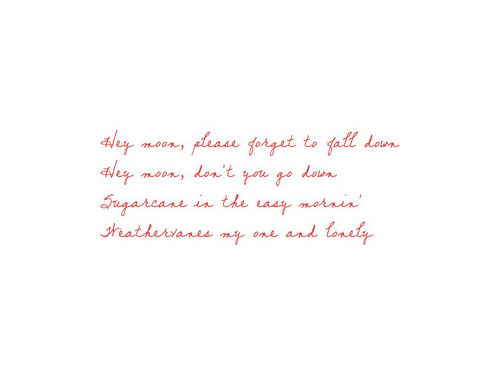 Hey moon, please forget to fall down
Hey moon, don't you go down
Sugarcane in the easy mornin'
Weathervanes my one and lonely